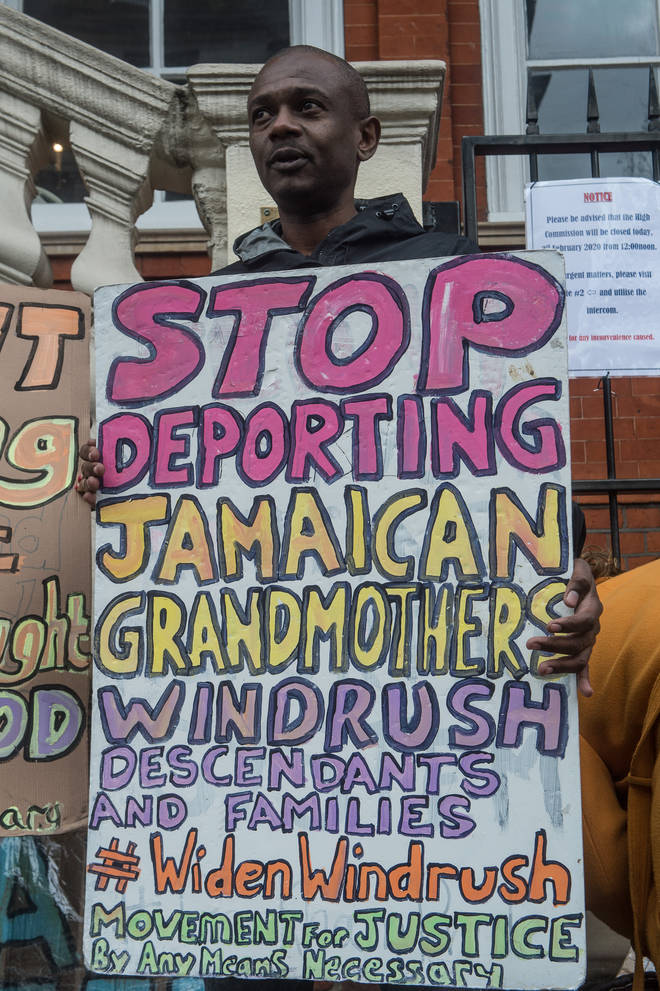 STOP
DEPORTING
JAMAICAN
GRANDMOTHERS
WINDRUSH
DESCENDANTS
AND FAMILIES
#WidenWindrush
MOVEMENT for JUSTICE
By Any Means Necessary
NOTICE
Please be advised that the High
Commission will be closed today,
February 2020 from 12:00noon.
matters, please visit
#2 ⇦ and utilise the
intercom.
for any inconvenience caused.
OD